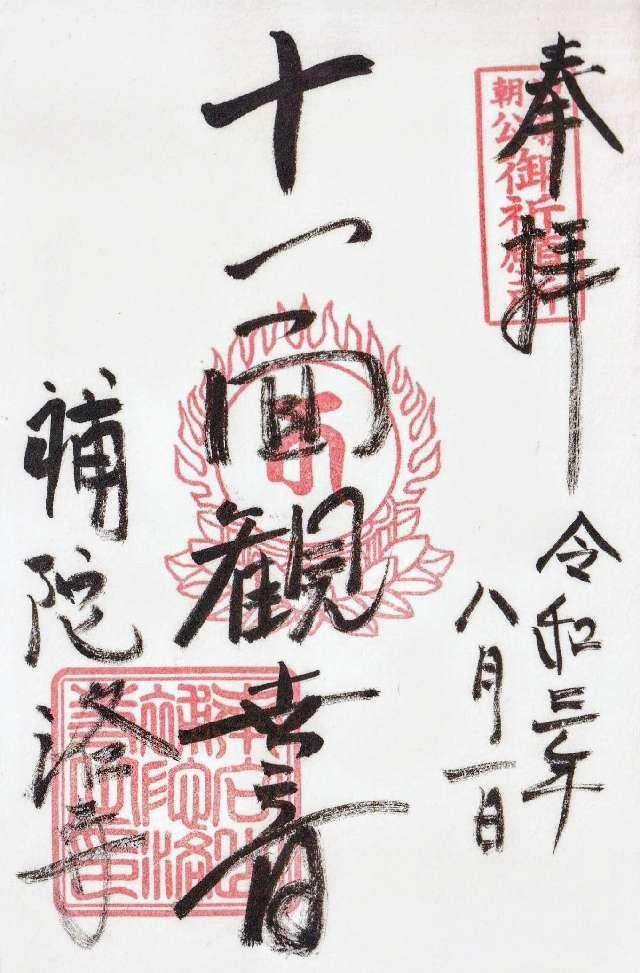 奉拝
朝公御祈願所
令和三年
八月一日
十一面観世音
補陀洛寺